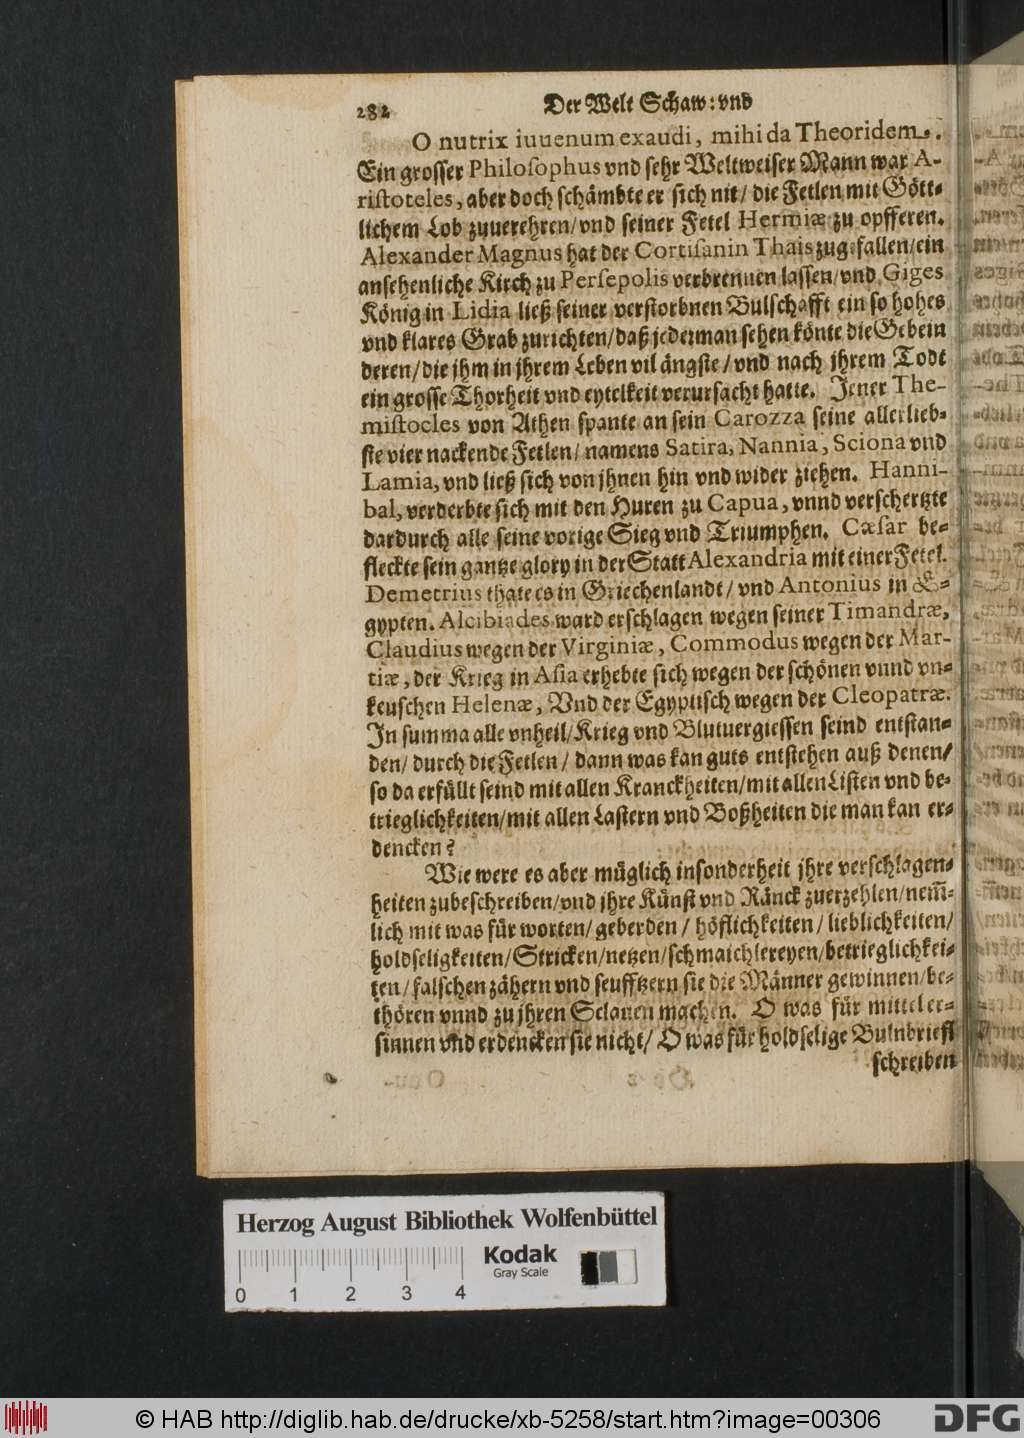 282 Der Welt Schaw: vnd
O nutrix iuuenum exaudi, mihi da Theoridem.
Ein grosser Philoſophus vnd sehr Weltweiser Mann war A-
riſtoteles, aber doch schämbte er sich nit / die Fetlen mit Gött-
lichem Lob zuuerehren / vnd seiner Fetel Hermiæ zu opfferen.
Alexander Magnus hat der Cortiſanin Thais zugefallen / ein
ansehenliche Kirch zu Perſepolis verbrennen lassen / vnd Giges
König in Lidia ließ seiner verstorbnen Bulschafft ein so hohes
vnd klares Grab zurichten / daß jederman sehen könte die Gebein
deren / die jhm in jhrem Leben vil ängste / vnd nach jhrem Todt
ein grosse Thorheit vnd eytelkeit verursacht hatte. Jener The-
miſtocles von Athen spante an sein Carozza seine allerlieb-
ste vier nackende Fetlen / namens Satira, Nannia, Sciona vnd
Lamia, vnd ließ sich von jhnen hin vnd wider ziehen. Hanni-
bal, verderbte sich mit den Huren zu Capua, vnnd verschertzte
dardurch alle seine vorige Sieg vnd Triumphen. Cæſar be-
fleckte sein gantze glory in der Statt Alexandria mit einer Fetel.
Demetrius thate es in Griechenlandt / vnd Antonius in Æ-
gypten. Alcibiades ward erschlagen wegen seiner Timandræ,
Claudius wegen der Virginiæ, Commodus wegen der Mar-
tiæ, der Krieg in Aſia erhebte sich wegen der schönen vnnd vn-
keuschen Helenæ, Vnd der Egyptisch wegen der Cleopatræ.
In summa alle vnheil / Krieg vnd Blutuergiessen seind entstan-
den / durch die Fetlen / dann was kan guts entstehen auß denen /
so da erfüllt seind mit allen Kranckheiten / mit allen Listen vnd be-
trieglichkeiten / mit allen Lastern vnd Boßheiten die man kan er-
dencken?
Wie were es aber müglich insonderheit jhre verschlagen-
heiten zubeschreiben / vnd jhre Künst vnd Ränck zuerzehlen / nem̃-
lich mit was für worten / geberden / höflichkeiten / lieblichkeiten /
holdseligkeiten / Stricken / netzen / schmaichlereyen / betrieglichkei-
ten / falschen zähern vnd seufftzern sie die Männer gewinnen / be-
thören vnnd zu jhren Sclauen machen. O was für mittel er-
sinnen vnd erdencken sie nicht / O was für holdselige Bulnbriefl
schreiben
Herzog August Bibliothek Wolfenbüttel
Kodak
Gray Scale
0 1 2 3 4
© HAB http://diglib.hab.de/drucke/xb-5258/start.htm?image=00306
DFG